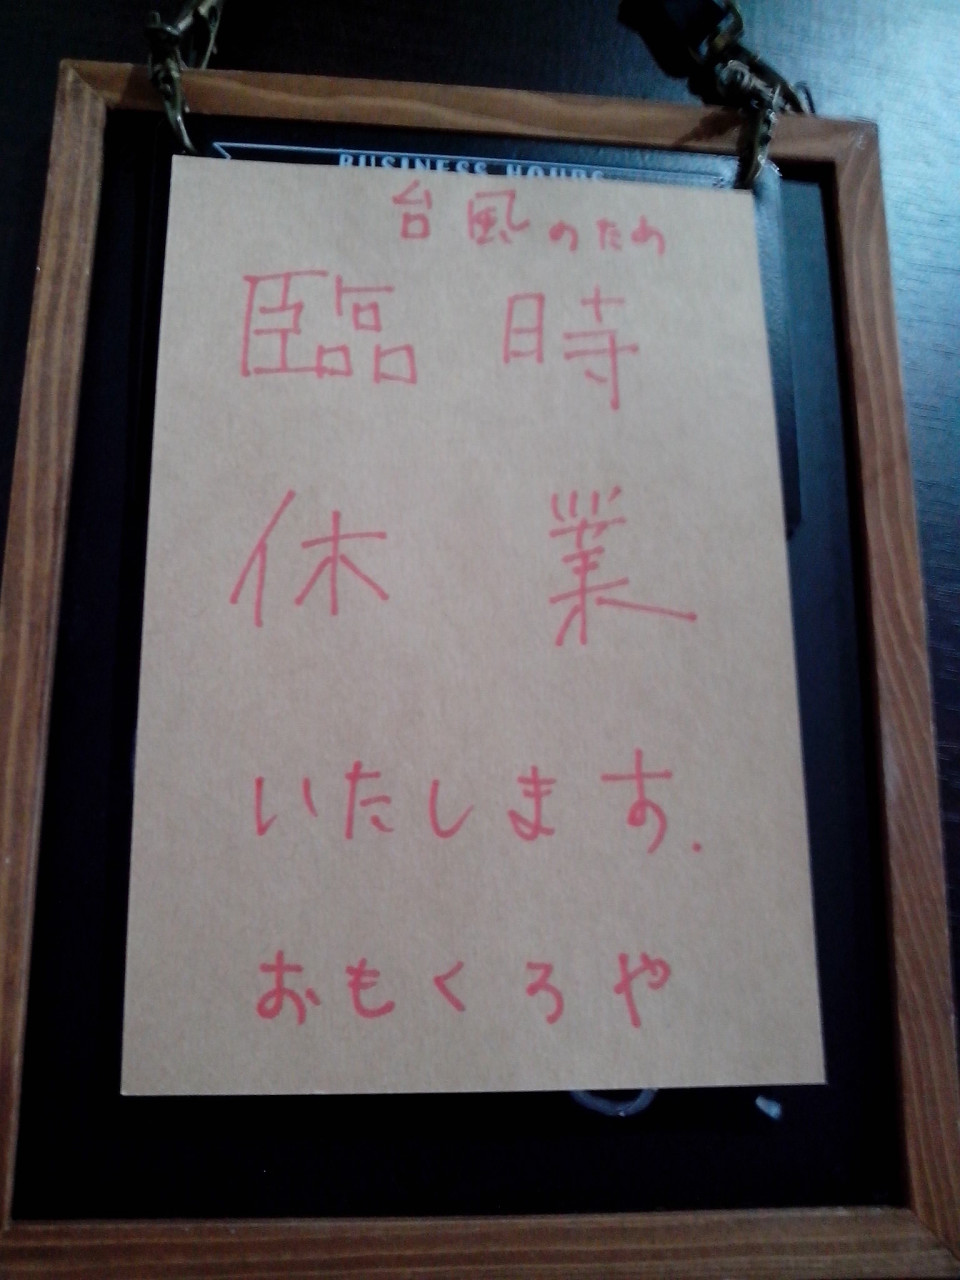 BUSINESS HOURS
台風のため
臨時
休業
いたします.
おもくろや